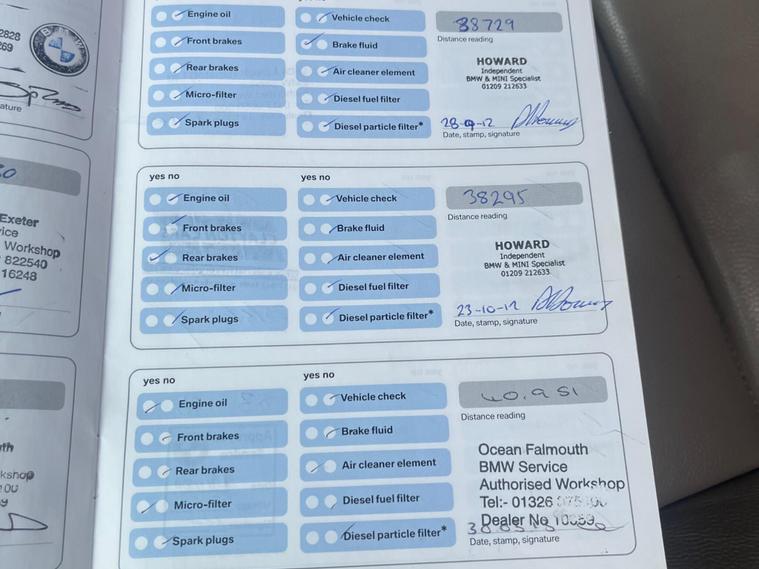 2828
269
BMW
ature
Engine oil
Front brakes
Rear brakes
Micro-filter
Spark plugs
Vehicle check
Brake fluid
Air cleaner element
Diesel fuel filter
Diesel particle filter*
38729
Distance reading
HOWARD
Independent
BMW & MINI Specialist
01209 212633
28-9-12
Date, stamp, signature
0
Exeter
vice
Workshop
822540
16248
yes no
Engine oil
Front brakes
Rear brakes
Micro-filter
Spark plugs
yes no
Vehicle check
Brake fluid
Air cleaner element
Diesel fuel filter
Diesel particle filter*
38295
Distance reading
HOWARD
Independent
BMW & MINI Specialist
01209 212633
23-10-12
Date, stamp, signature
th
kshop
yes no
Engine oil
Front brakes
Rear brakes
Micro-filter
Spark plugs
yes no
Vehicle check
Brake fluid
Air cleaner element
Diesel fuel filter
Diesel particle filter*
40.951
Distance reading
Ocean Falmouth
BMW Service
Authorised Workshop
Tel:- 01326
Dealer No
Date, stamp, signature